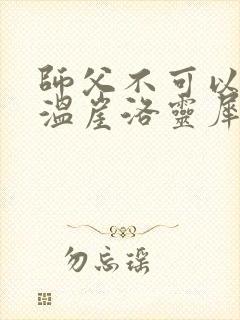 師父不可以
溫崖洛靈犀
勿忘瑤